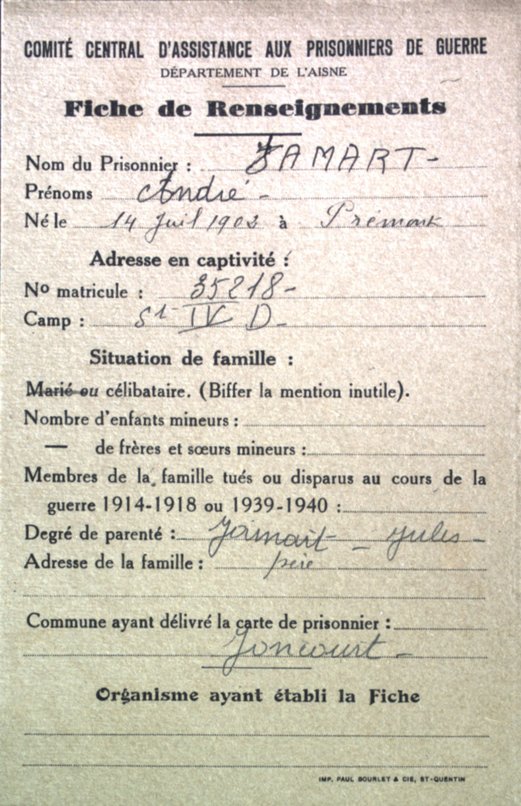 COMITÉ CENTRAL D'ASSISTANCE AUX PRISONNIERS DE GUERRE
DÉPARTEMENT DE L'AISNE
Fiche de Renseignements
Nom du Prisonnier : JAMART -
Prénoms André -
Né le 14 Juil 1903 à Prémont
Adresse en captivité :
No matricule : 35218 -
Camp : St IV D -
Situation de famille :
Marié ou célibataire. (Biffer la mention inutile).
Nombre d'enfants mineurs :
— de frères et sœurs mineurs :
Membres de la famille tués ou disparus au cours de la
guerre 1914-1918 ou 1939-1940 :
Degré de parenté : Jamart - Jules -
Adresse de la famille : père
Commune ayant délivré la carte de prisonnier :
Joncourt -
Organisme ayant établi la Fiche
IMP. PAUL BOURLET & CIE, ST-QUENTIN